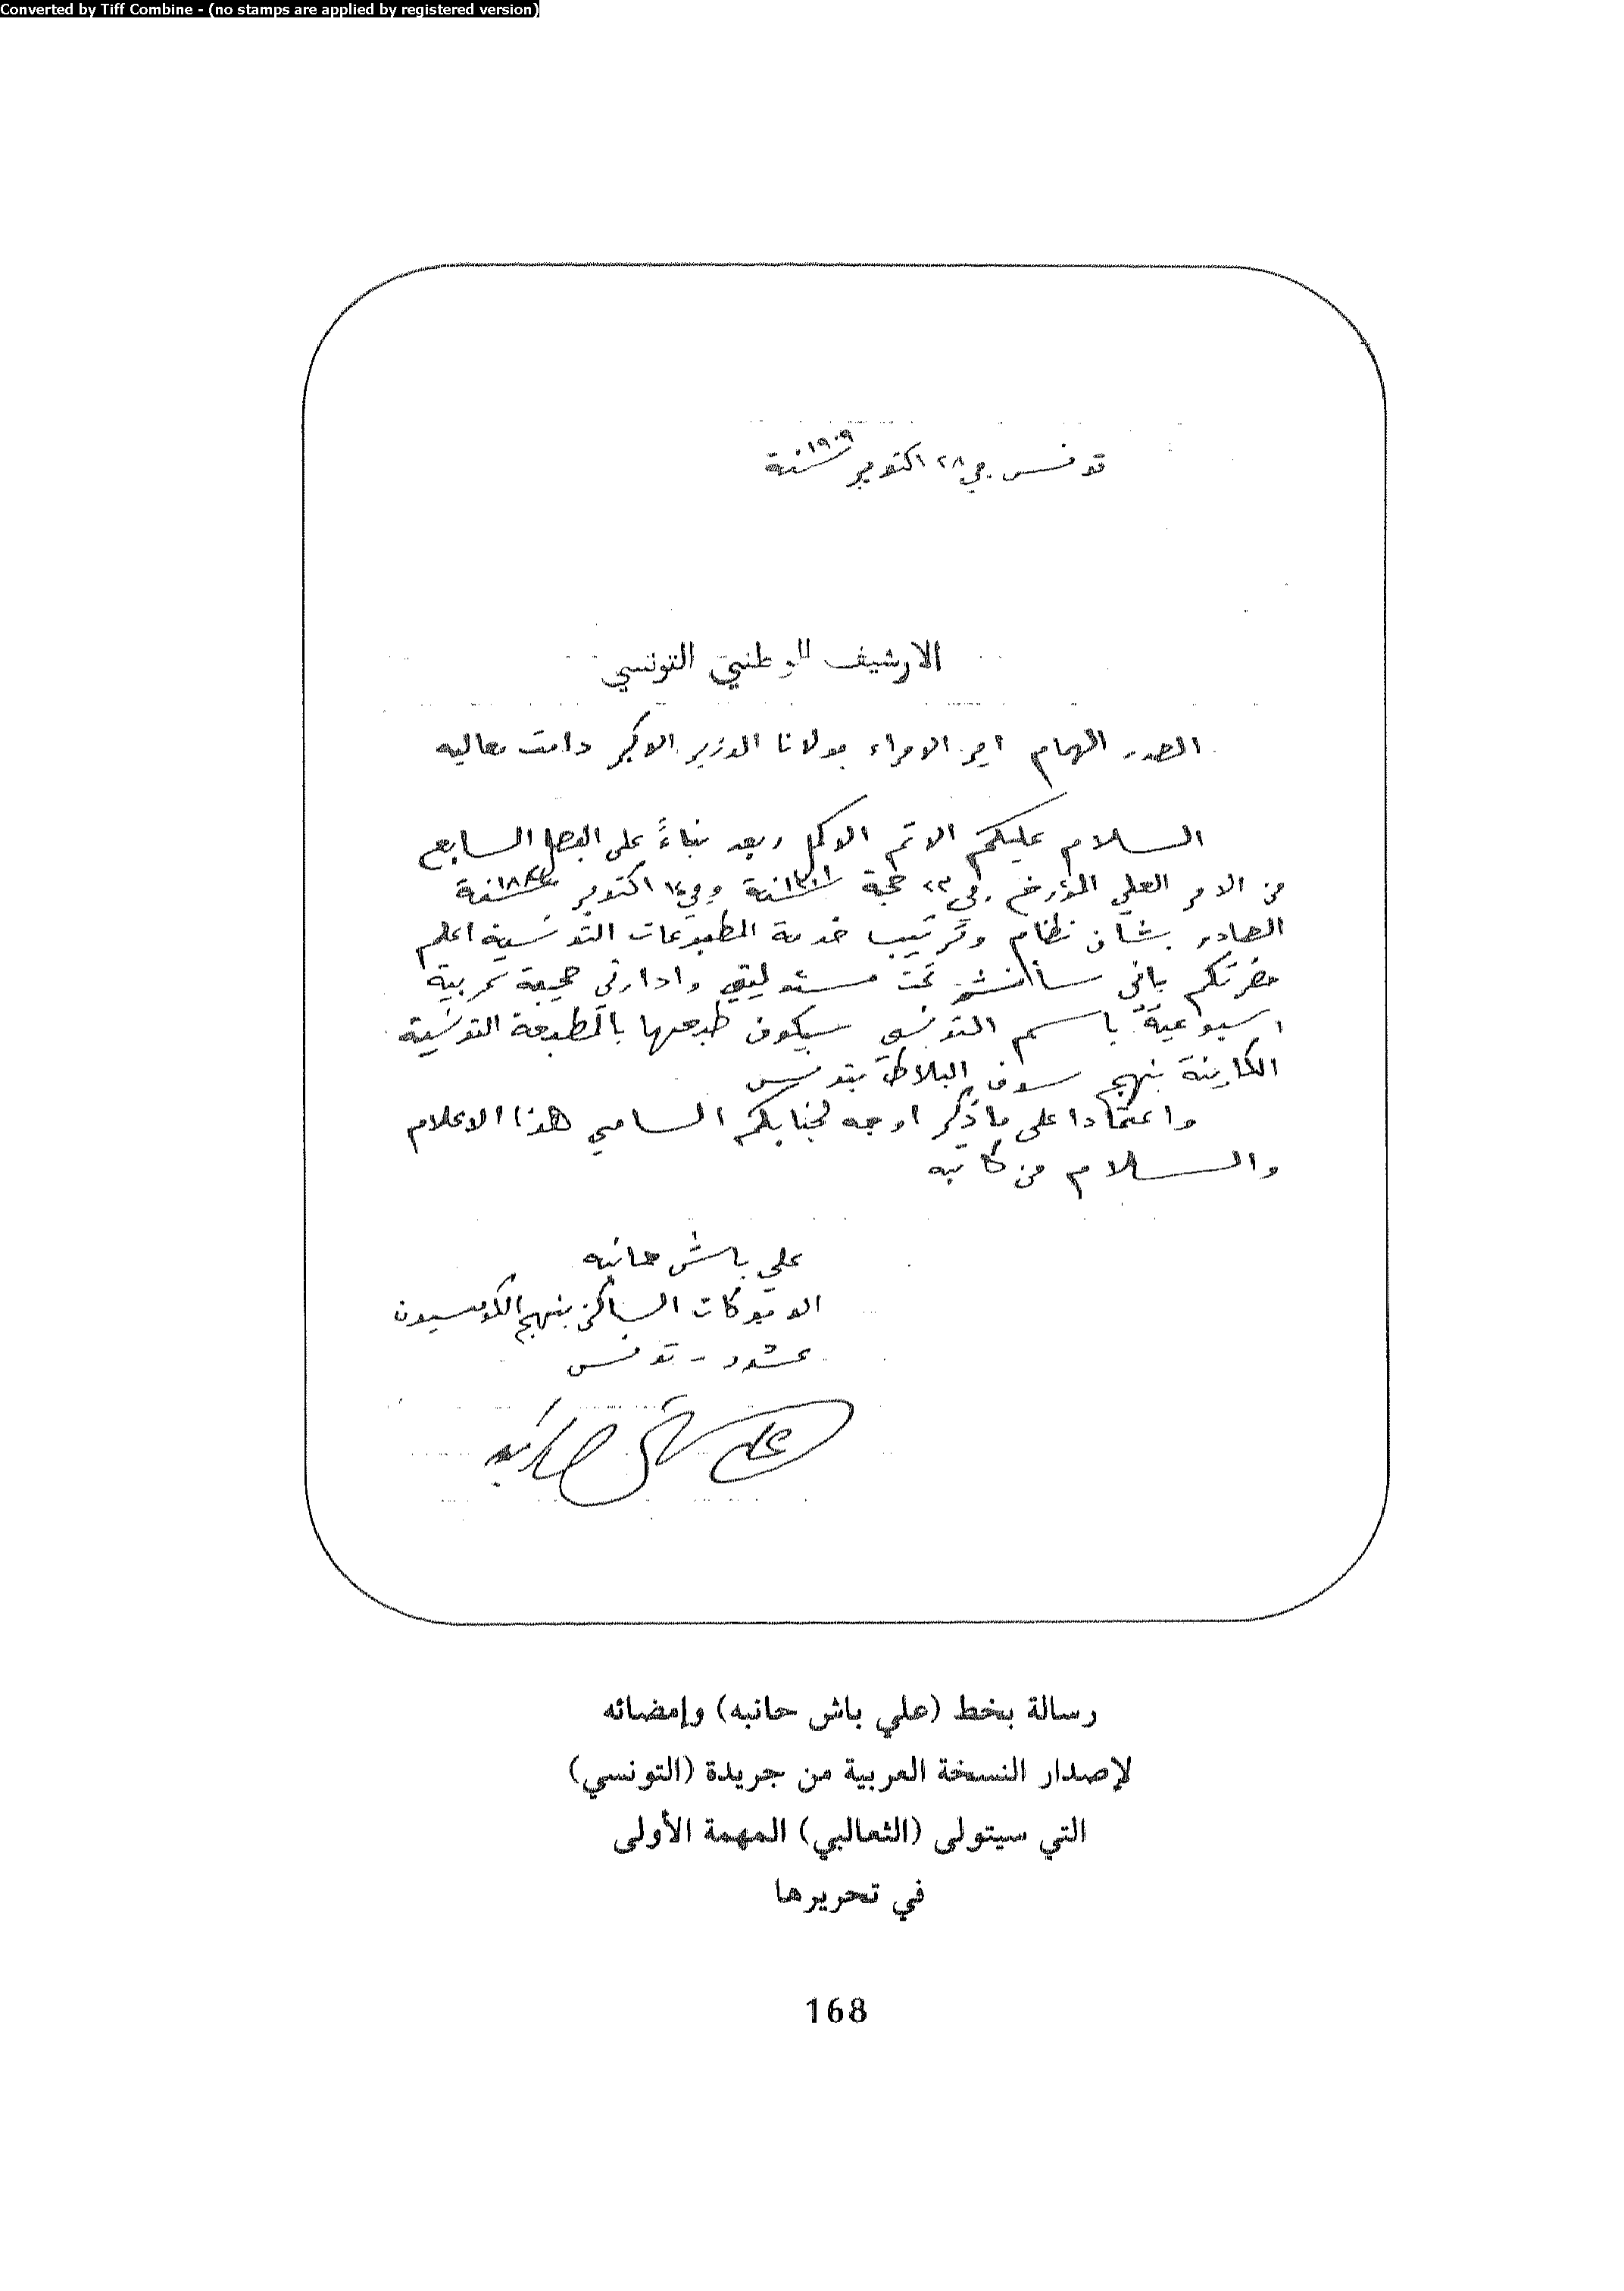 Converted by Tiff Combine - (no stamps are applied by registered version)
تونس في ٢٨ اكتوبر سنة ١٩٠٩
الارشيف الوطني التونسي
الصدر الهمام امير الامراء مولانا الوزير الاكبر دامت معاليه
السلام عليكم الاتم الاكمل وبعد بناءً على الفصل السابع
من الامر العلي المؤرخ في ٢٣ حجة سنة ١٣٠١ وفي ١٤ اكتوبر سنة ١٨٨٤
الصادر بشان نظام وترتيب خدمة المطبوعات التونسية اعلم
حضرتكم بانى سأنشر تحت مسئوليتي وادارتي صحيفة عربية
اسبوعية باسم التونسي سيكون طبعها بالمطبعة التونسية
الكاينة بنهج سوق البلاط بتونس
واعتمادا على ما ذكر اوجه لجنابكم السامي هذا الاعلام
والسلام من كاتبه
علي باش حانبه
الافوكات الساكن بنهج الكومسيون
تونس
علي باش حانبه
رسالة بخط (علي باش حانبه) وإمضائه
لإصدار النسخة العربية من جريدة (التونسي)
التي سيتولى (الثعالبي) المهمة الأولى
في تحريرها
168